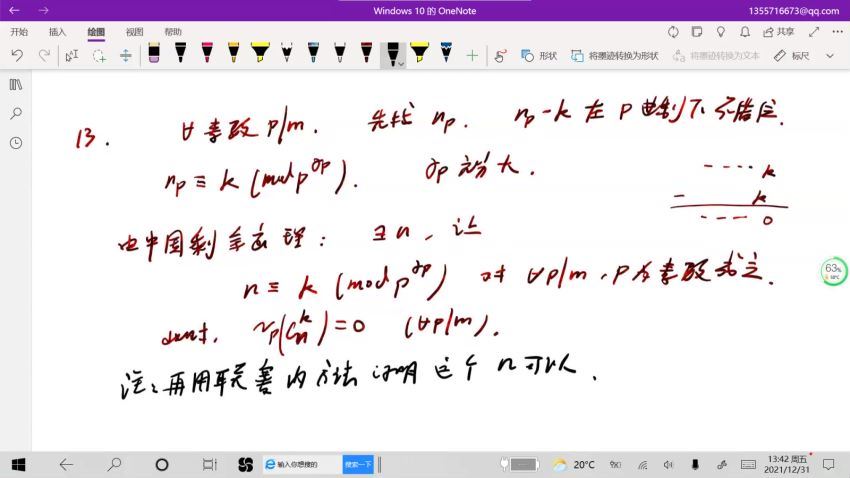 Windows 10 的 OneNote
1355716673@qq.com
开始 插入 绘图 视图 帮助
共享
形状 将墨迹转换为形状 将墨迹转换为文本 标尺
13. ∀素数 p|m. 先找 n_p. n_p-k 在 p 进制下不借位.
n_p ≡ k (mod p^{α_p}). α_p 充分大.
---- k
- k
---- 0
由中国剩余定理: ∃n, 让
n ≡ k (mod p^{α_p}) 对 ∀p|m, p为素数成立.
此时, v_p(C_n^k)=0 (∀p|m).
注: 再用联赛的方法说明这个 n 可以.
63%
输入你想搜的 搜索一下
20°C
13:42 周五
2021/12/31